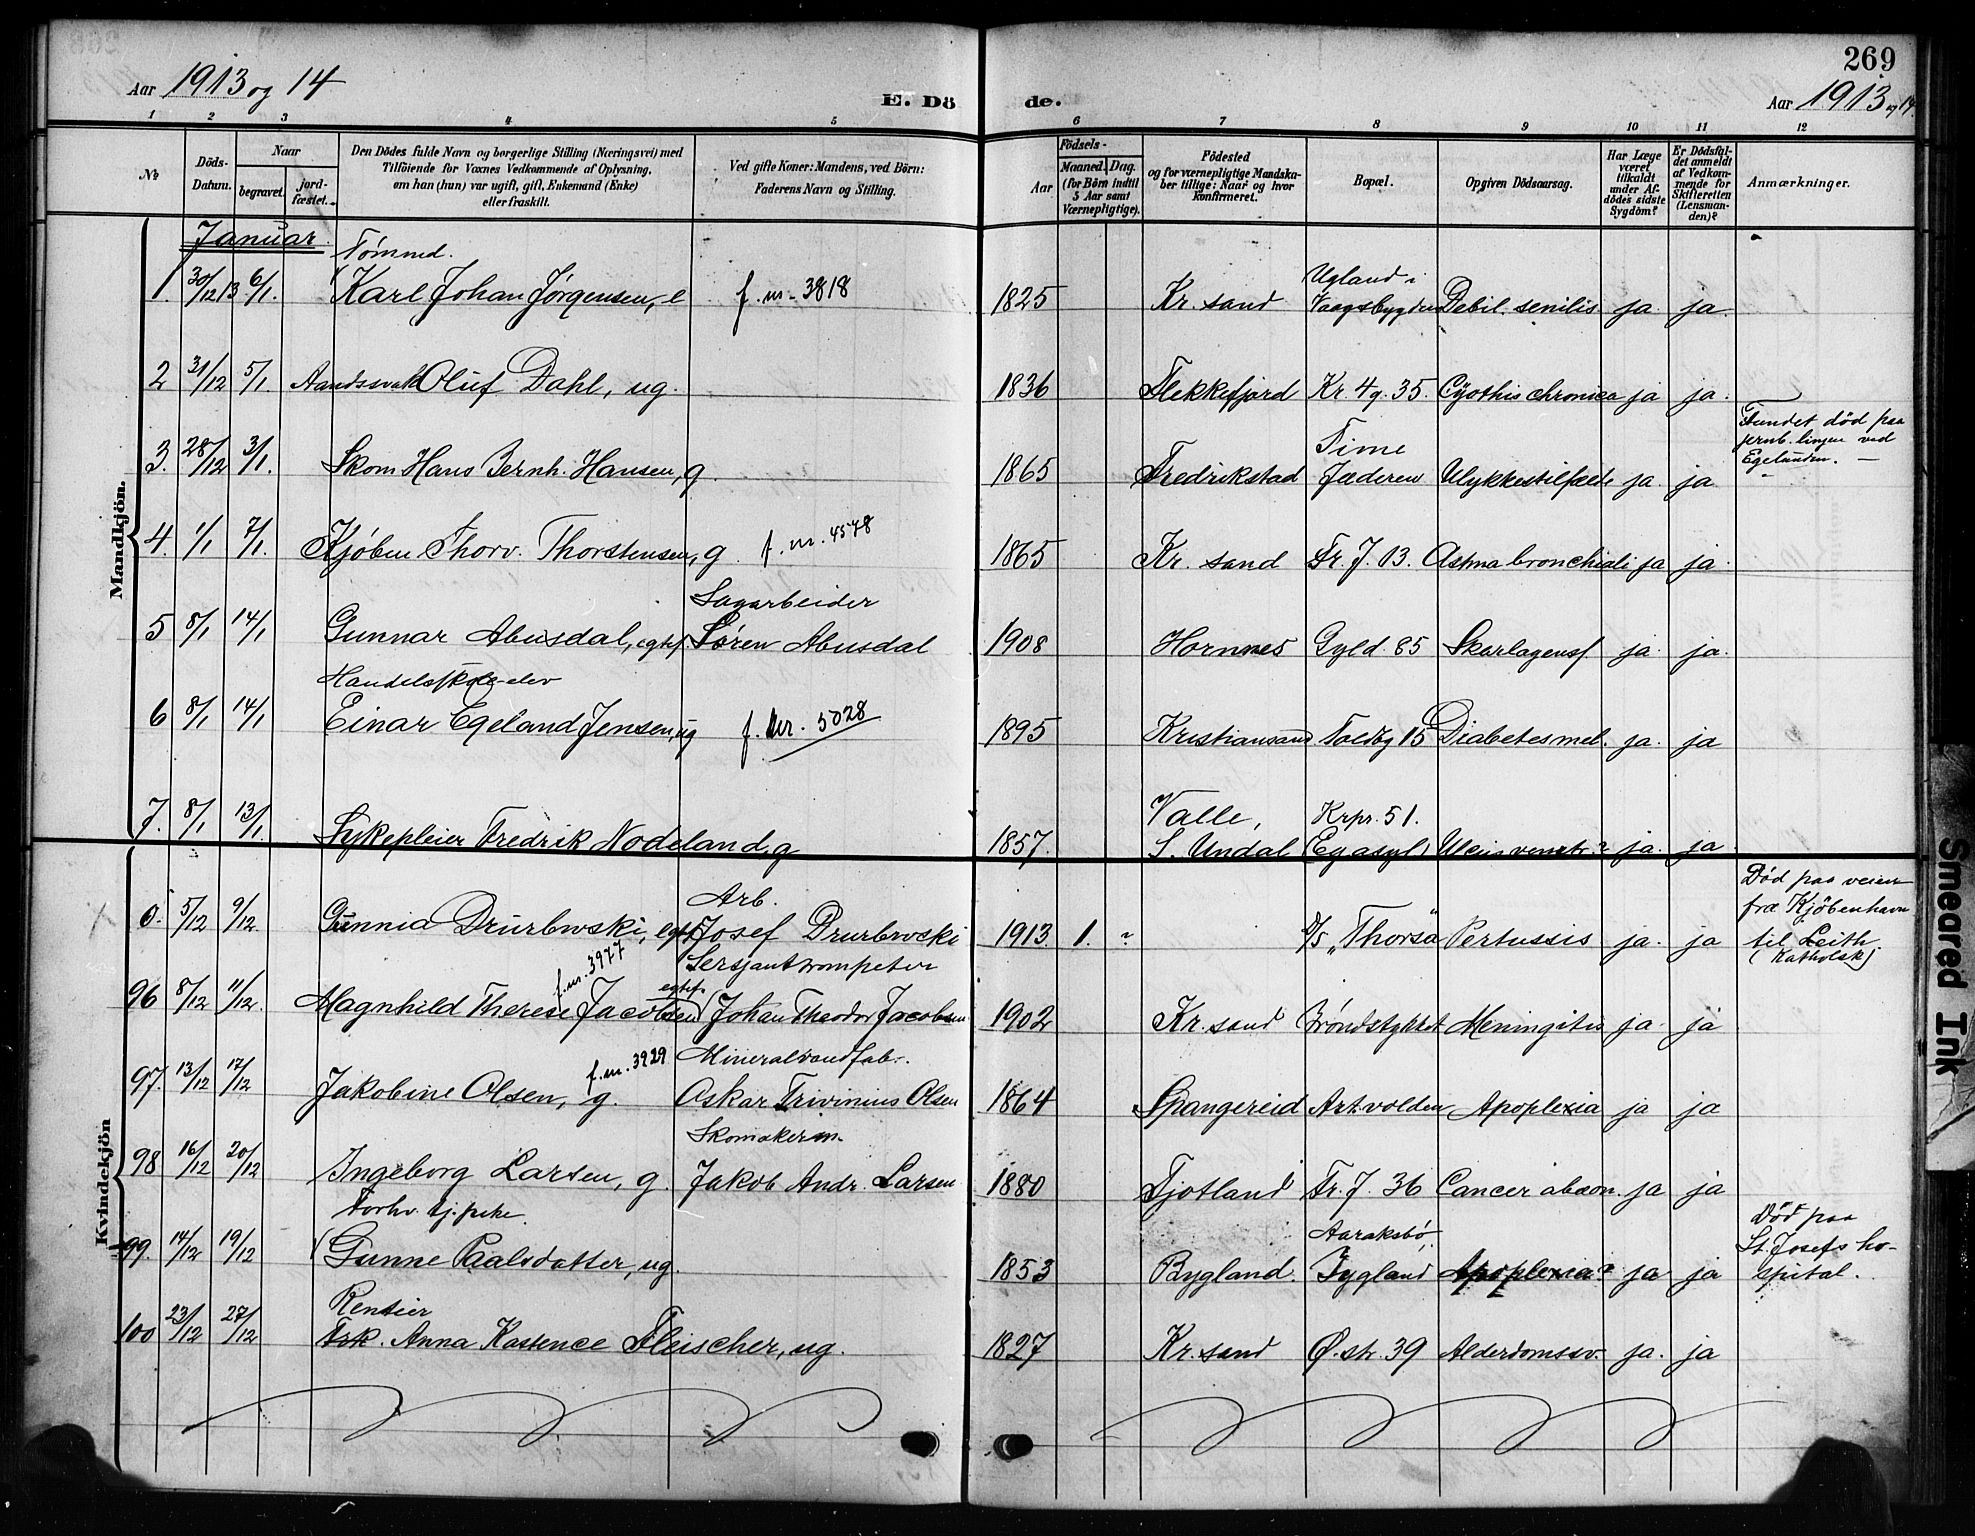 269
Aar 1913 og 14
E. Dö
de.
Aar 1913 og 14.
1 2 3 4 5 6 7 8 9 10 11 12
No
Döds-Datum.
Naar
begravet.
jord-fæstet.
Den Dödes fulde Navn og borgerlige Stilling (Næringsvei) med
Tilföiende for Voxnes Vedkommende af Oplysning,
om han (hun) var ugift, gift, Enkemand (Enke)
eller fraskilt.
Ved gifte Koner: Mandens, ved Börn:
Faderens Navn og Stilling.
Födsels-
Aar
Maaned. Dag.
(for Börn indtil
5 Aar samt
Værnepligtige).
Födested
og for værnepligtige Mandska-
ber tillige: Naar og hvor
konfirmeret.
Bopæl.
Opgiven Dödsaarsag.
Har Læge
været
tilkaldt
under Af-
dödes sidste
Sygdom?
Er Dödsfal-
det anmeldt
af Vedkom-
mende for
Skifteretten
(Lensman-
den)?
Anmærkninger.
Mandkjön.
Januar.
Tømmd.
1. 30/12 13 6/1. Karl Johan Jørgensen, e f. nr. 3818 1825 Kr. sand Ugland i Vaagsbygden Debil. senilis ja ja.
2 31/12 5/1. Aandssvak Oluf Dahl, ug. 1836 Flekkefjord Kr. 4 g. 35. chronica ja ja.
3. 28/12 3/1. Skom Hans Bernh. Hansen, g. 1865 Fredrikstad Time Jæderen Ulykkestilfælde ja ja
Fundet död paa
jernb. linjen ved
Egelunden. —
4. 1/1 7/1. Kjøbm Thorv. Thorstensen, g f. nr. 4578 1865 Kr. sand Fr. J. 13. Astma bronchiali ja ja.
Sagarbeider
5 8/1 14/1 Gunnar Abusdal, egtef. Søren Abusdal 1908 Hornnes Gyld. 85 Skarlagensf ja. ja.
Handelsskole-elev
6 8/1 14/1 Einar Egeland Jensen, ug f. Nr. 5028 1895 Kristiansand Toldbg 15 Diabetes mel. ja. ja
7. 8/1 13/1 Sykepleier Fredrik Nodeland, g 1857. Valle, S. Undal Krpr. 51. Eg asyl Ulcus ventr.? ja. ja
Kvindekjön
Arb.
0. 5/12 9/12 Gunnia Drurbwski, egtef Josef Drurbwski 1913 1. ? D/S „Thorsa" Pertussis ja. ja
Död paa veien
fra Kjöbenhavn
til Leith.
(Katholsk)
f. nr. 3977
Sersjanttrompeter
96 8/12 11/12. Magnhild Therese Jacobsen egtef. Johan Theodor Jacobsen 1902 Kr. sand Brøndstykket Meningitis ja. ja
Mineralvandfab.
97. 13/12 17/12 Jakobine Olsen, g. f. nr. 3929 Oskar Trivinius Olsen 1864 Spangereid Art. volden Apoplexia ja ja
Skomakerm.
98 16/12 20/12 Ingeborg Larsen, g. Jakob Andr. Larsen 1880 Fjotland Fr. J. 36 Cancer abdom. ja ja
Forhv. tj. pike.
99. 14/12 19/12 Gunne Paalsdatter, ug. 1853 Bygland. Aaraksbø, Bygland Apoplexia? ja ja
Död paa
St. Josefs ho-
spital.
Rentier
100 23/12 27/12 Frk. Anna Kastence Fleischer, ug. 1827 Kr. sand Ø. str. 39 Alderdomssv. ja. ja
Smeared Ink